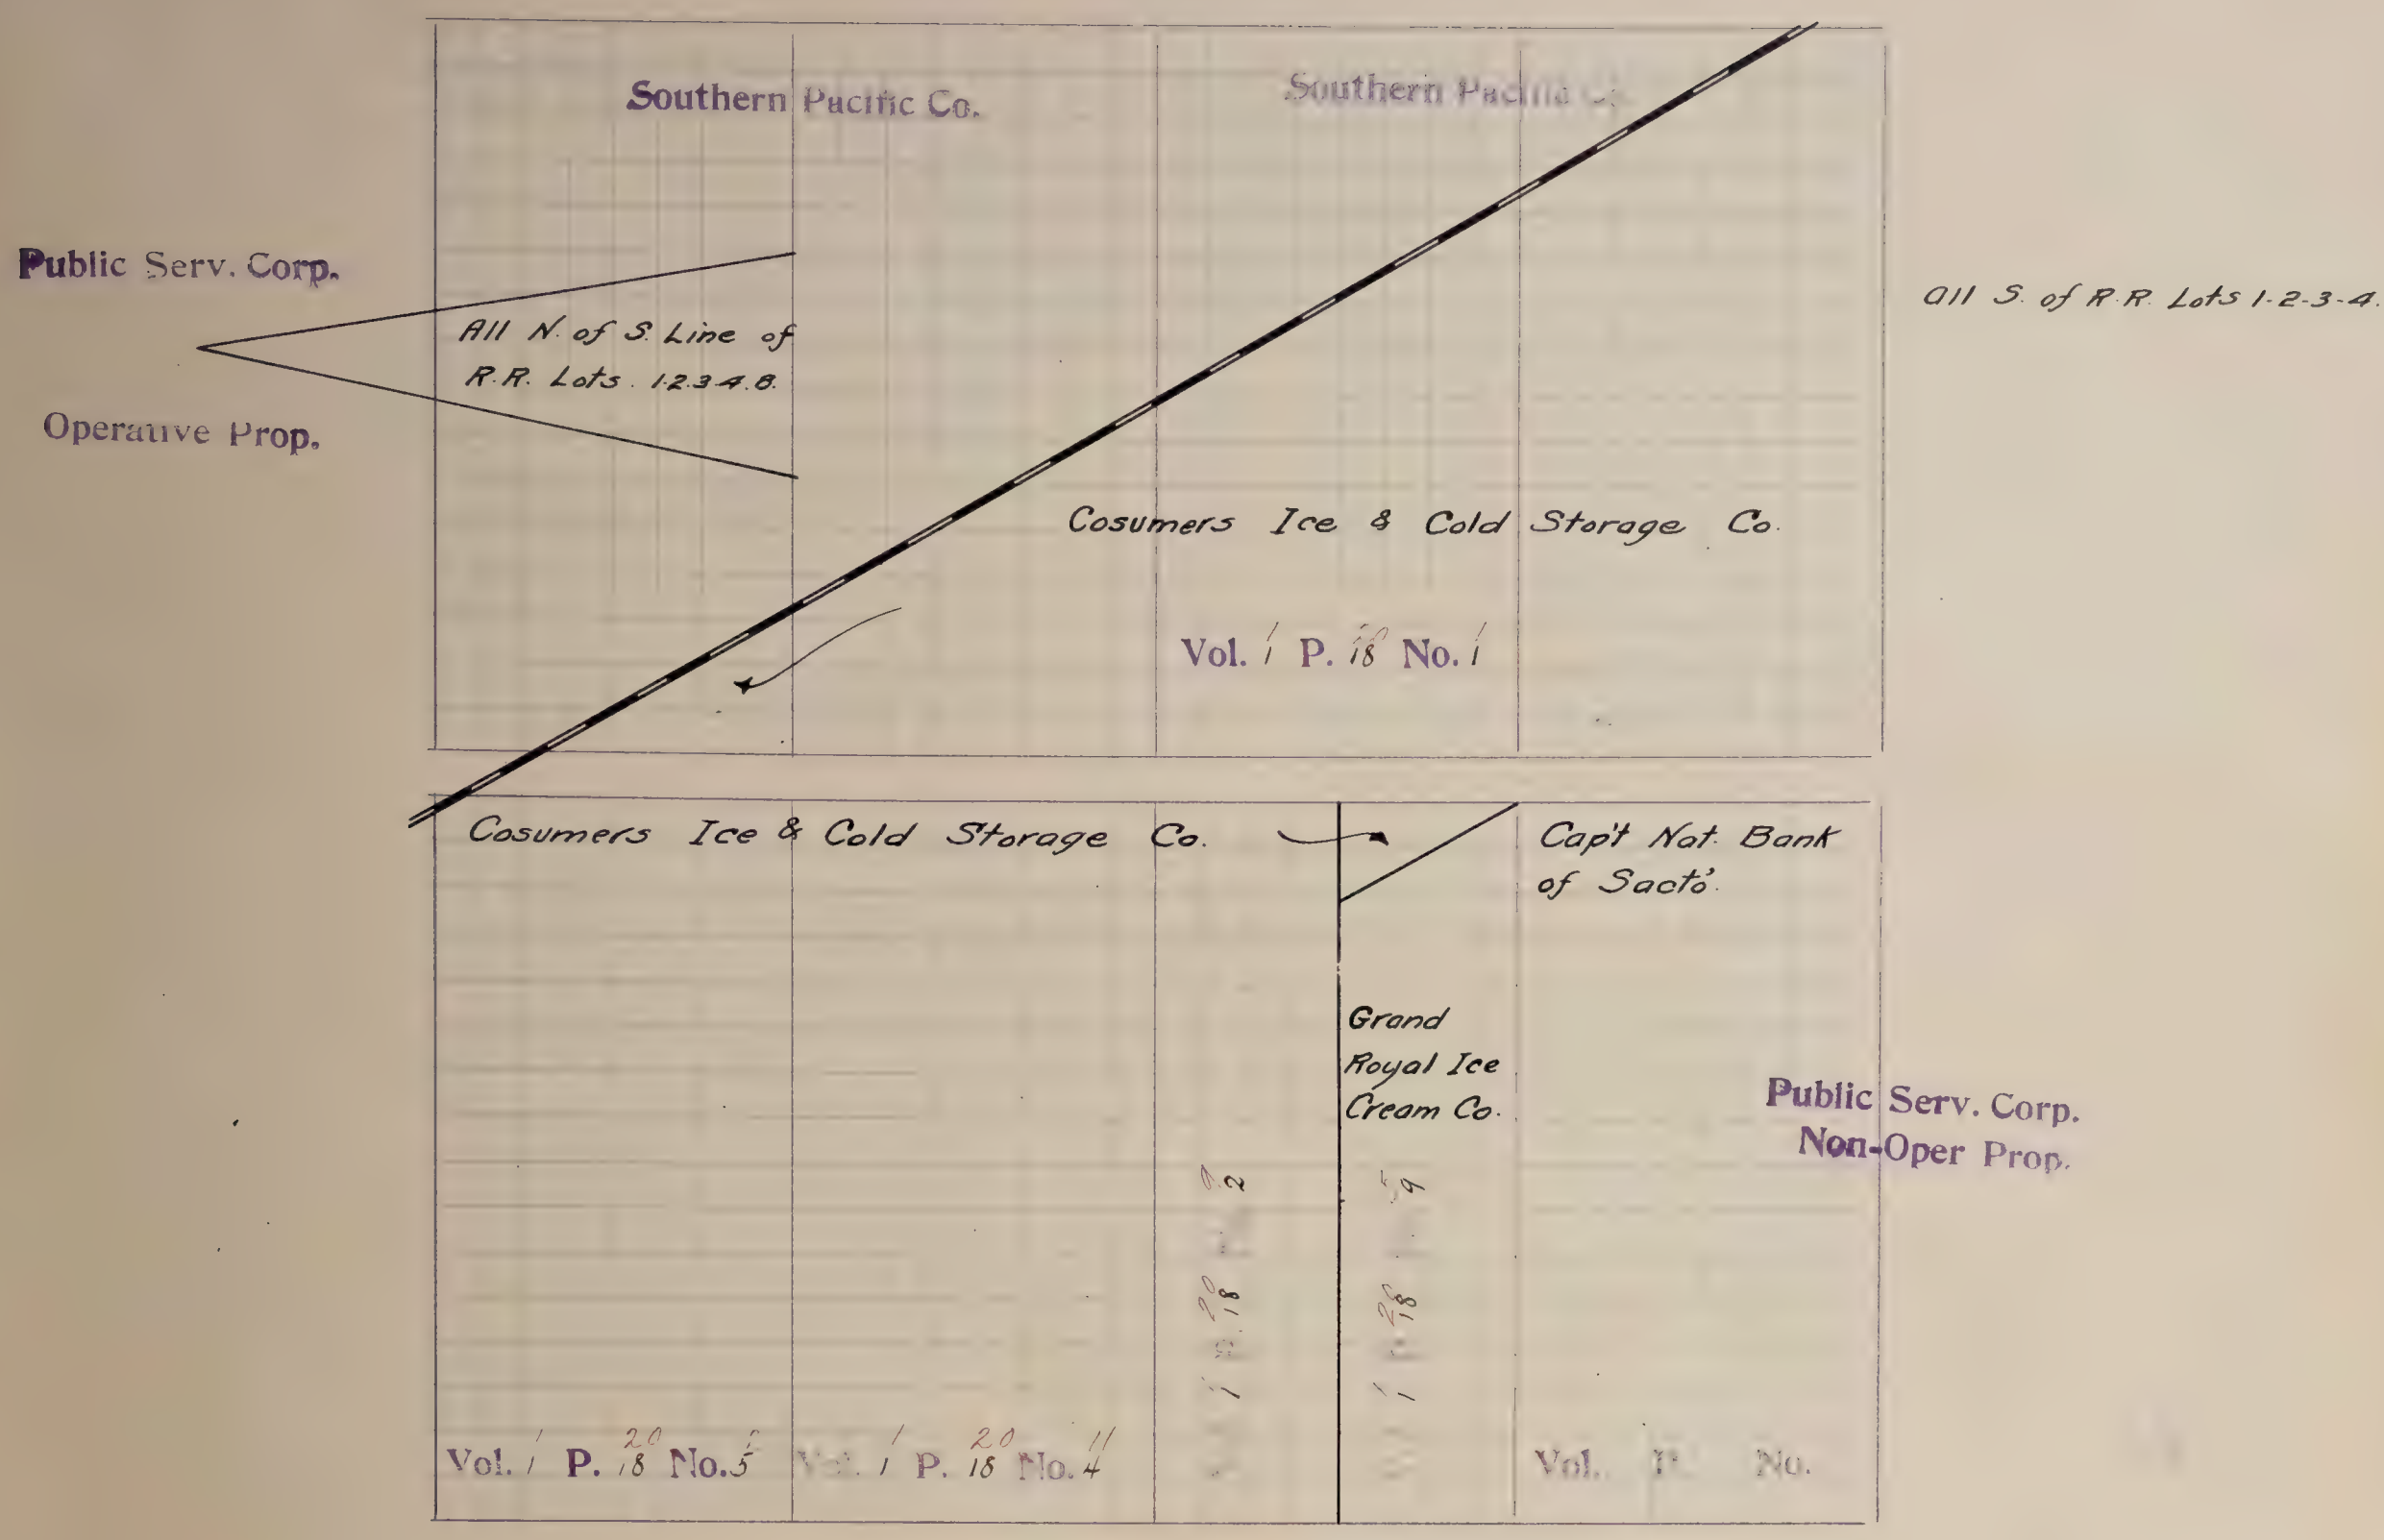 Southern Pacific Co.
Southern Pacific Co.
Public Serv. Corp.
All N. of S. Line of
R.R. Lots. 1.2.3.4.8.
Operative Prop.
All S. of R.R. Lots 1-2-3-4.
Cosumers Ice & Cold Storage Co.
Vol. 1 P. 18 No. 1
Cosumers Ice & Cold Storage Co.
Cap't Nat. Bank
of Sacto'.
Grand
Royal Ice
Cream Co.
Public Serv. Corp.
Non-Oper Prop.
9
2
20
18
1
5
9
20
18
1
1 20
Vol. 1 P. 18 No. 5
1 20 11
Vol. 1 P. 18 No. 4
Vol. P. No.